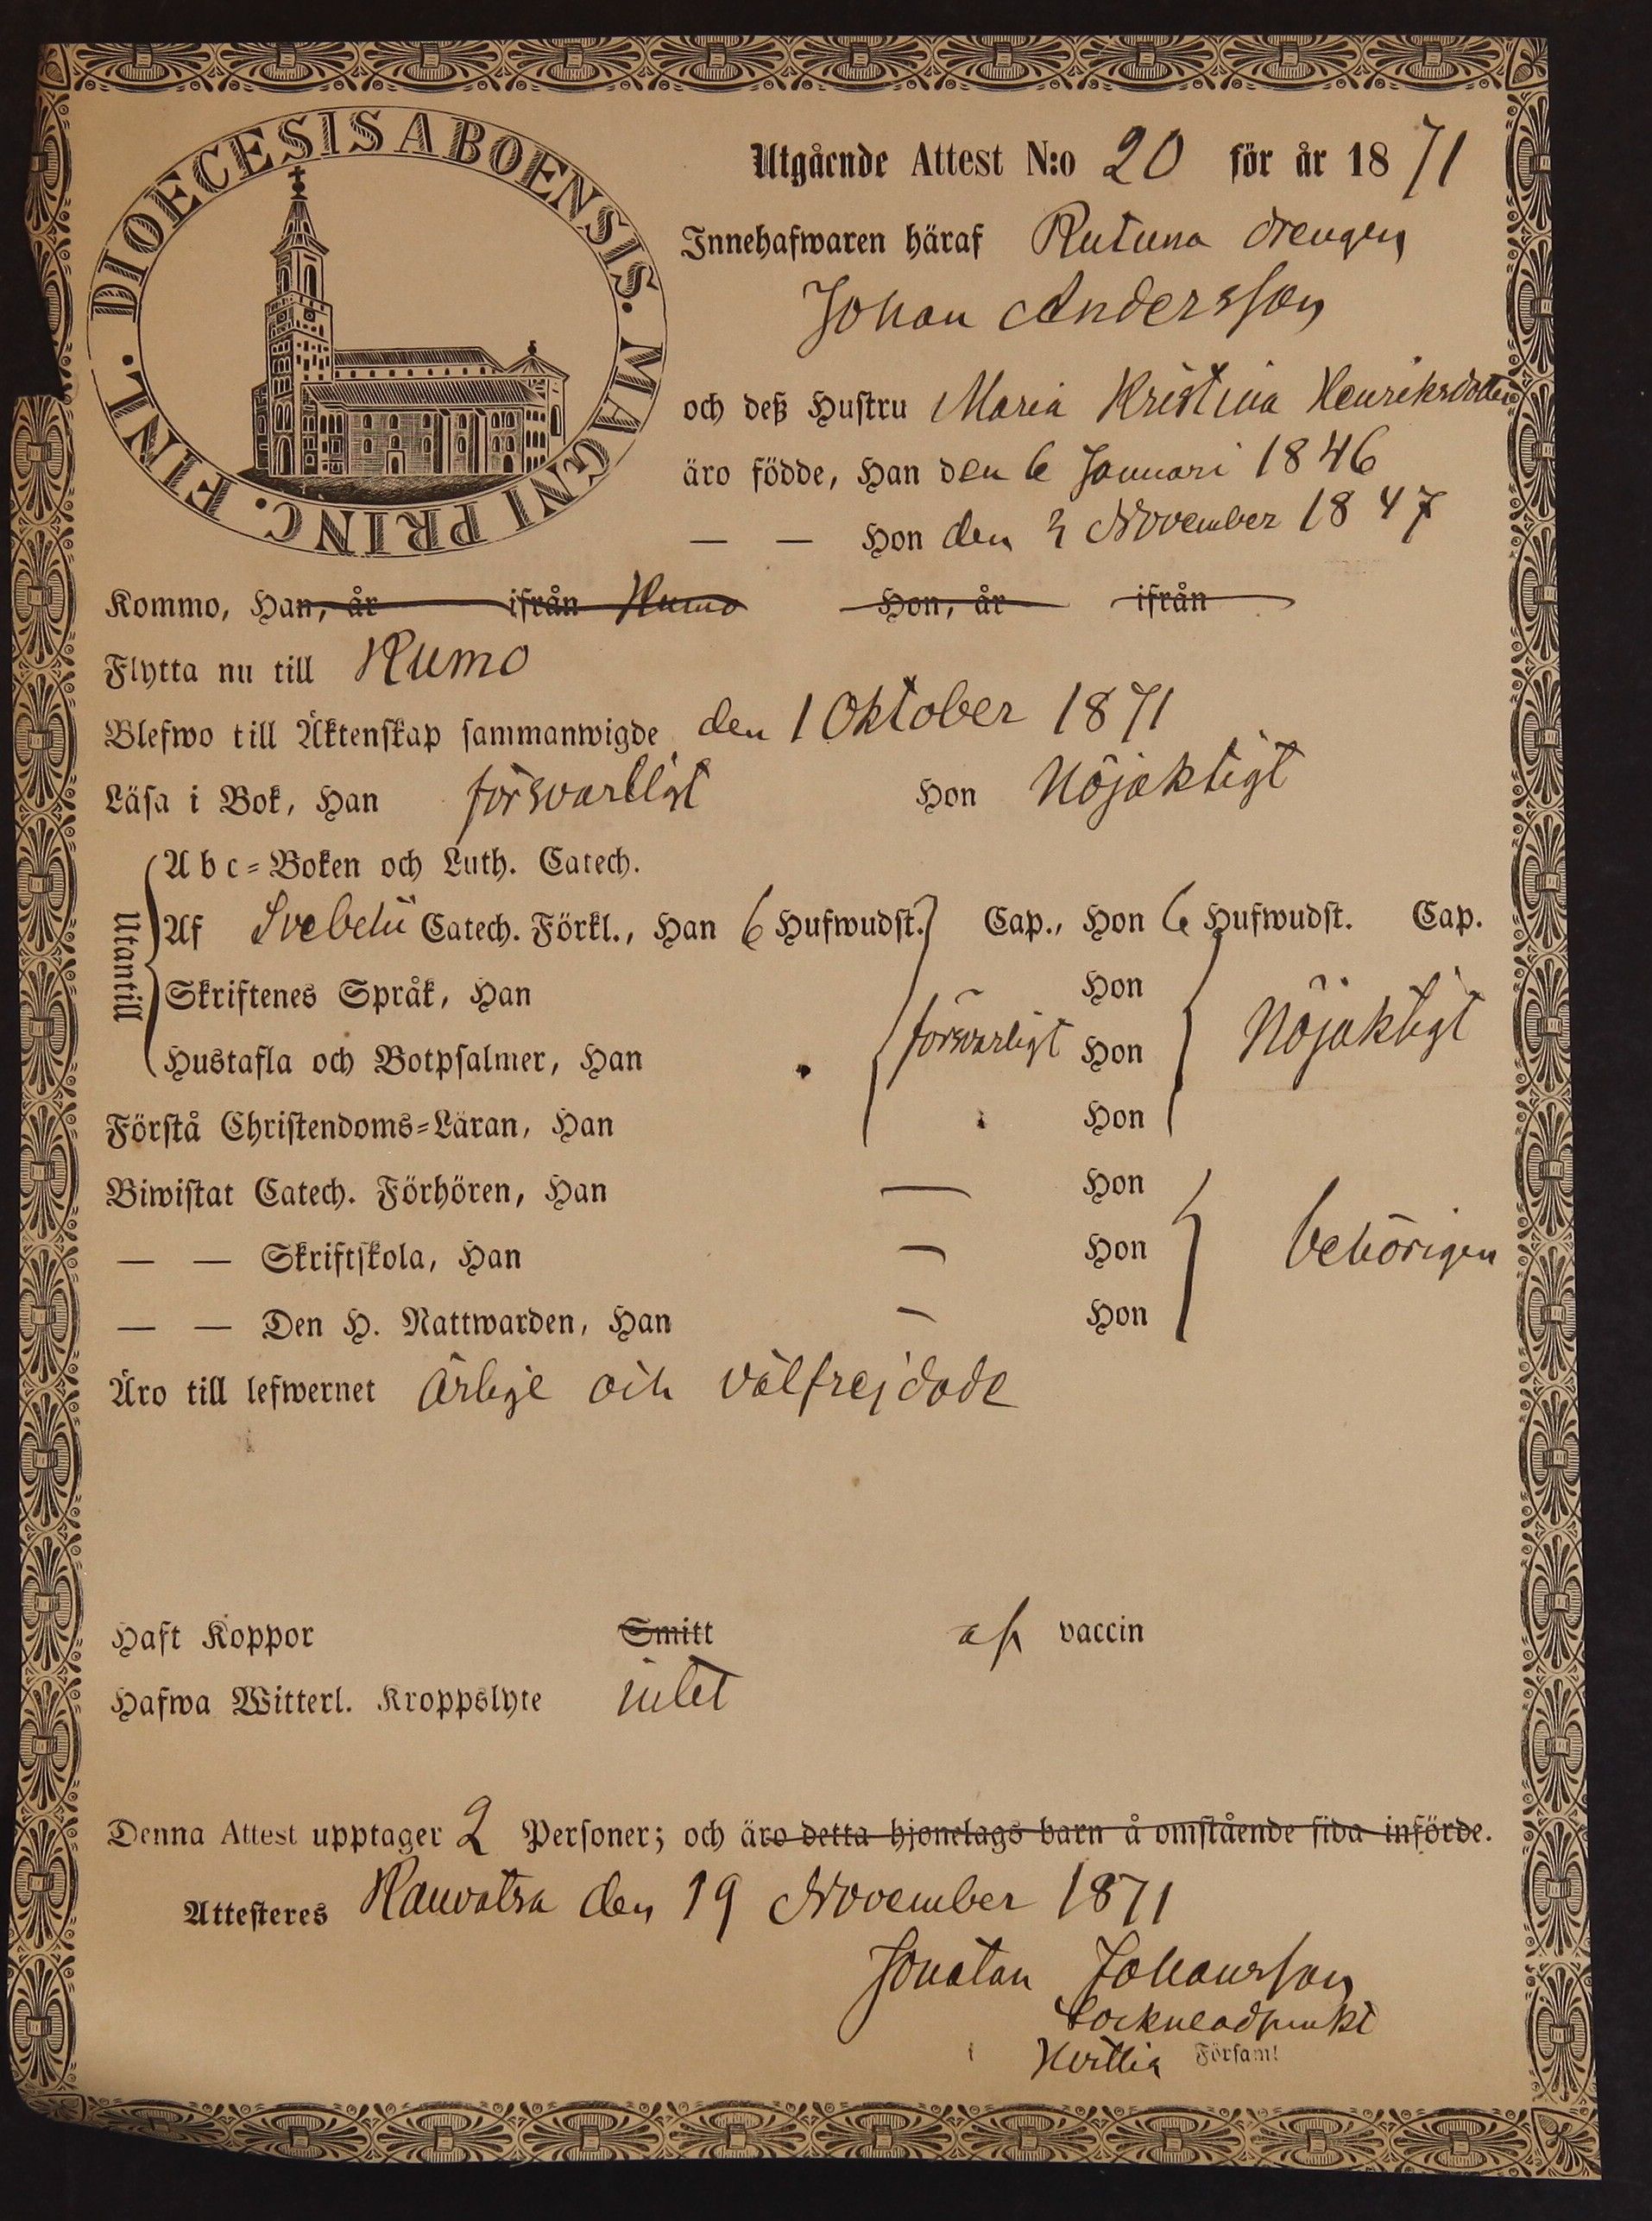 DIOECESIS ABOENSIS. MAGNI PRINC. FINL.
Utgående Attest N:o 20 för år 1871
Innehafwaren häraf drengen
Johan Andersson
och deß Hustru Maria Kristina Henriksdotter
äro födde, Han den 6 Januari 1846
— — Hon den 3 November 1847
Kommo, Han, år ifrån Kumo Hon, år ifrån
Flytta nu till Kumo
Blefwo till Äktenskap sammanwigde den 1 Oktober 1871
Läsa i Bok, Han försvarligt Hon Nöjaktigt
Utantill
Abc-Boken och Luth. Catech.
Af Svebelii Catech. Förkl., Han 6 Hufwudst. Cap., Hon 6 Hufwudst. Cap.
Skriftenes Språk, Han Hon
Hustafla och Botpsalmer, Han försvarligt Hon Nöjaktigt
Förstå Christendoms-Läran, Han Hon
Biwistat Catech. Förhören, Han — Hon
— — Skriftskola, Han — Hon behörigen
— — Den H. Nattwarden, Han — Hon
Äro till lefwernet ärlige och välfrejdade
Haft Koppor Smitt af vaccin
Hafwa Witterl. Kroppslyte intet
Denna Attest upptager 2 Personer; och äro detta hjonelags barn å omstående sida införde.
Attesteres Kauvatsa den 19 November 1871
Jonatan Johansson
Sockneadjunkt
i Församl